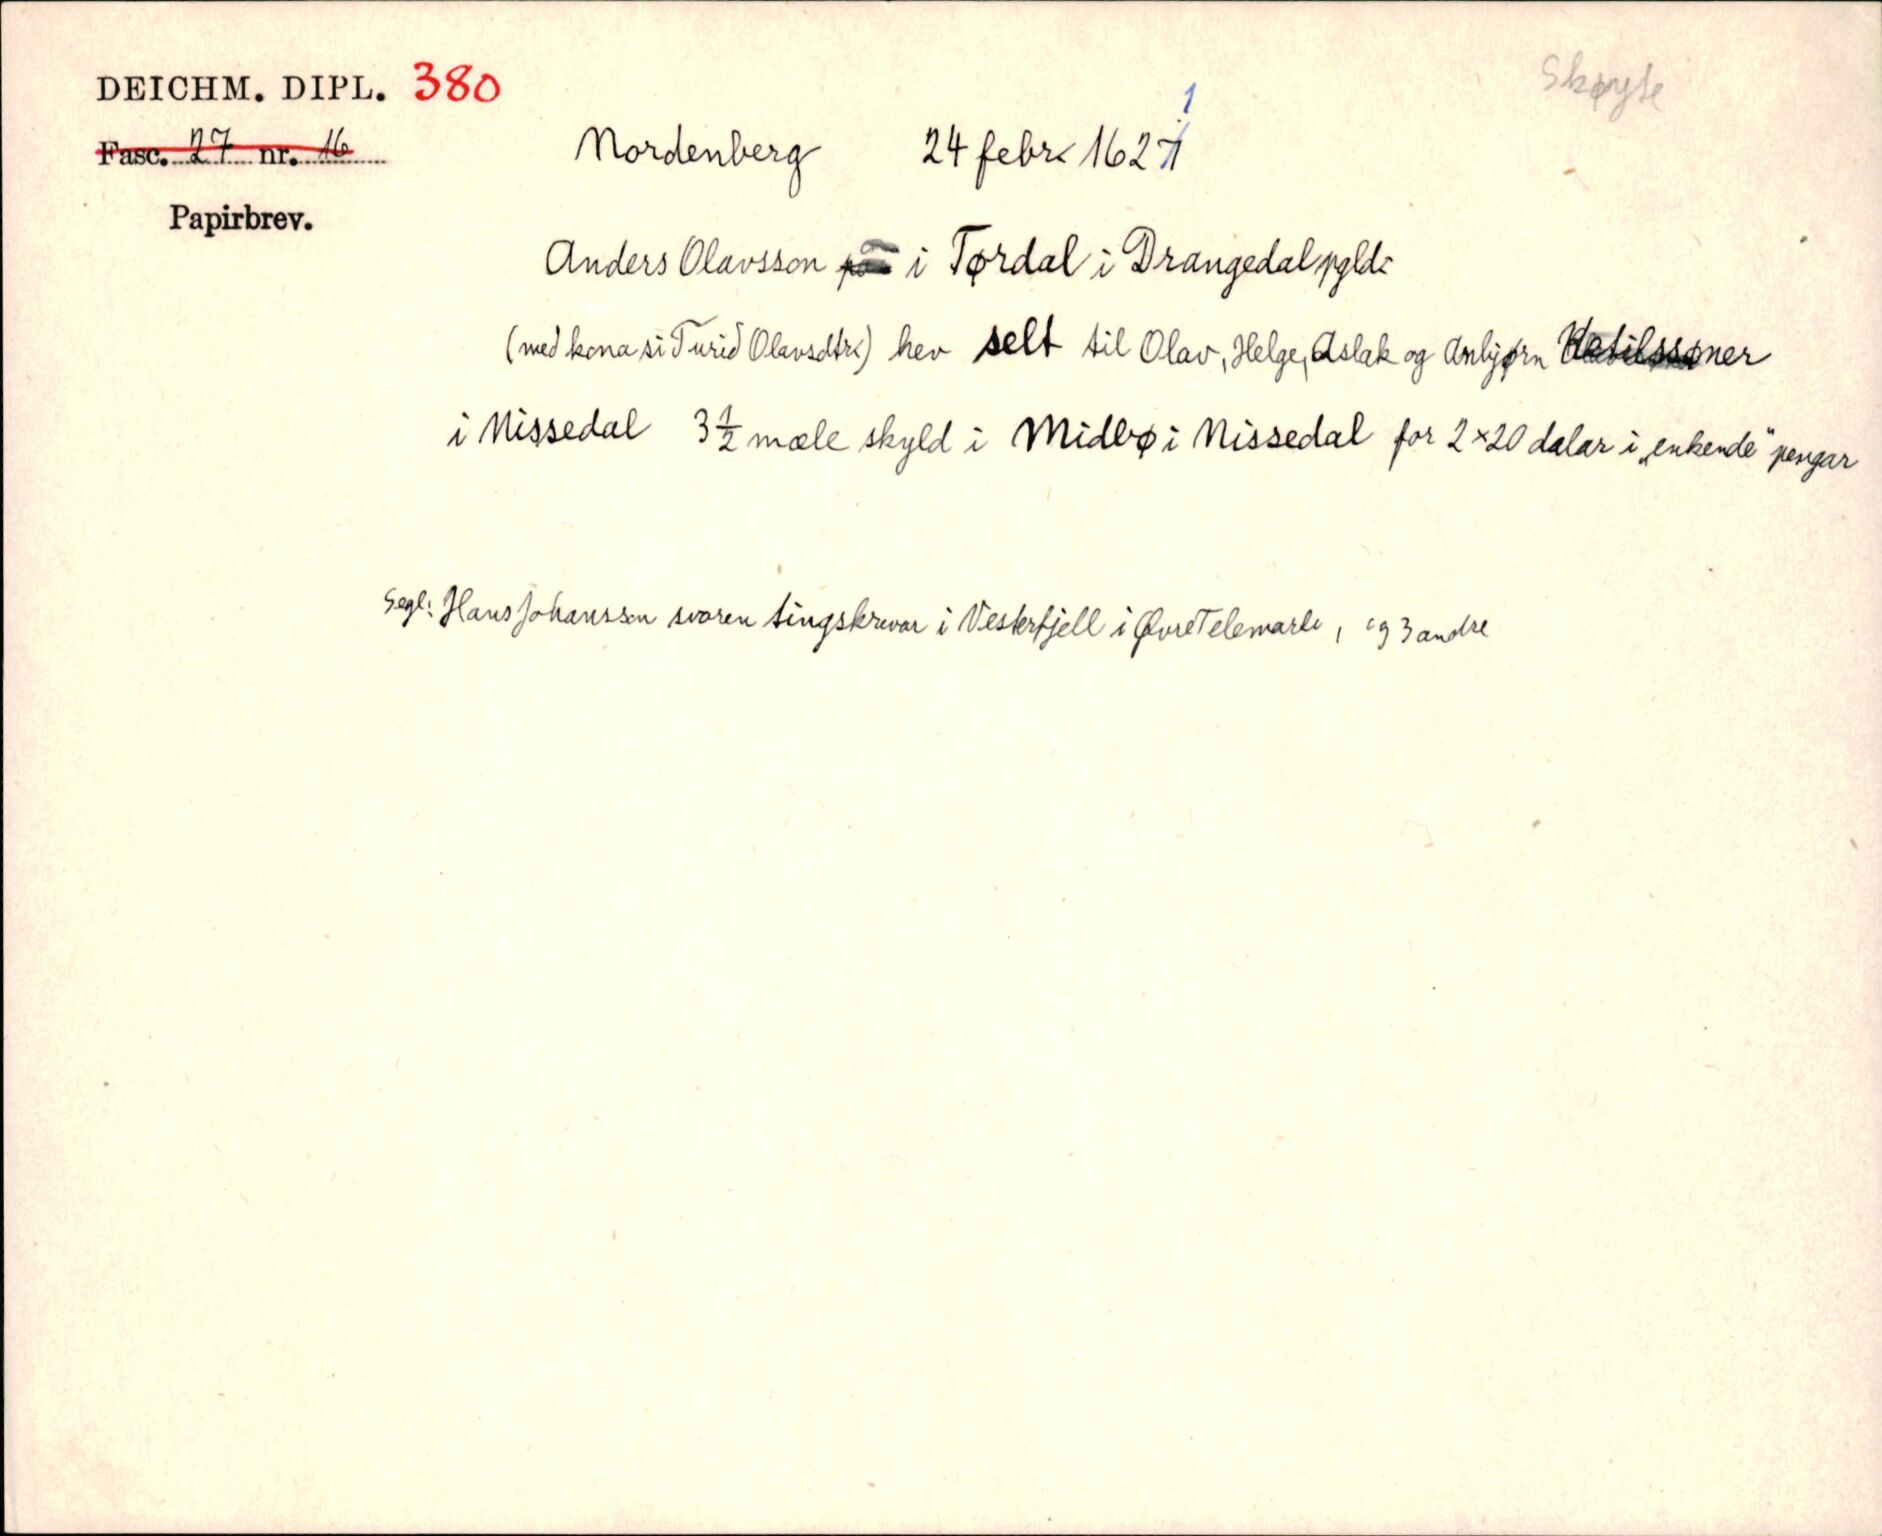 DEICHM. DIPL. 380
Skøyte
Fasc. 27 nr. 16
Nordenberg 24 febr. 1621
1
Papirbrev.
Anders Olavsson på i Tørdal i Drangedal pgld.
(med kona si Turid Olavsdtr.) hev selt til Olav, Helge, Aslak og Anbjørn Ketilssøner
i Nissedal 3 1/2 mæle skyld i Midbø i Nissedal for 2 x 20 dalar i „enkende" pengar
Segl: Hans Johanssen svoren tingskrivar i Vesterfjell i Øvre Telemark, og 3 andre